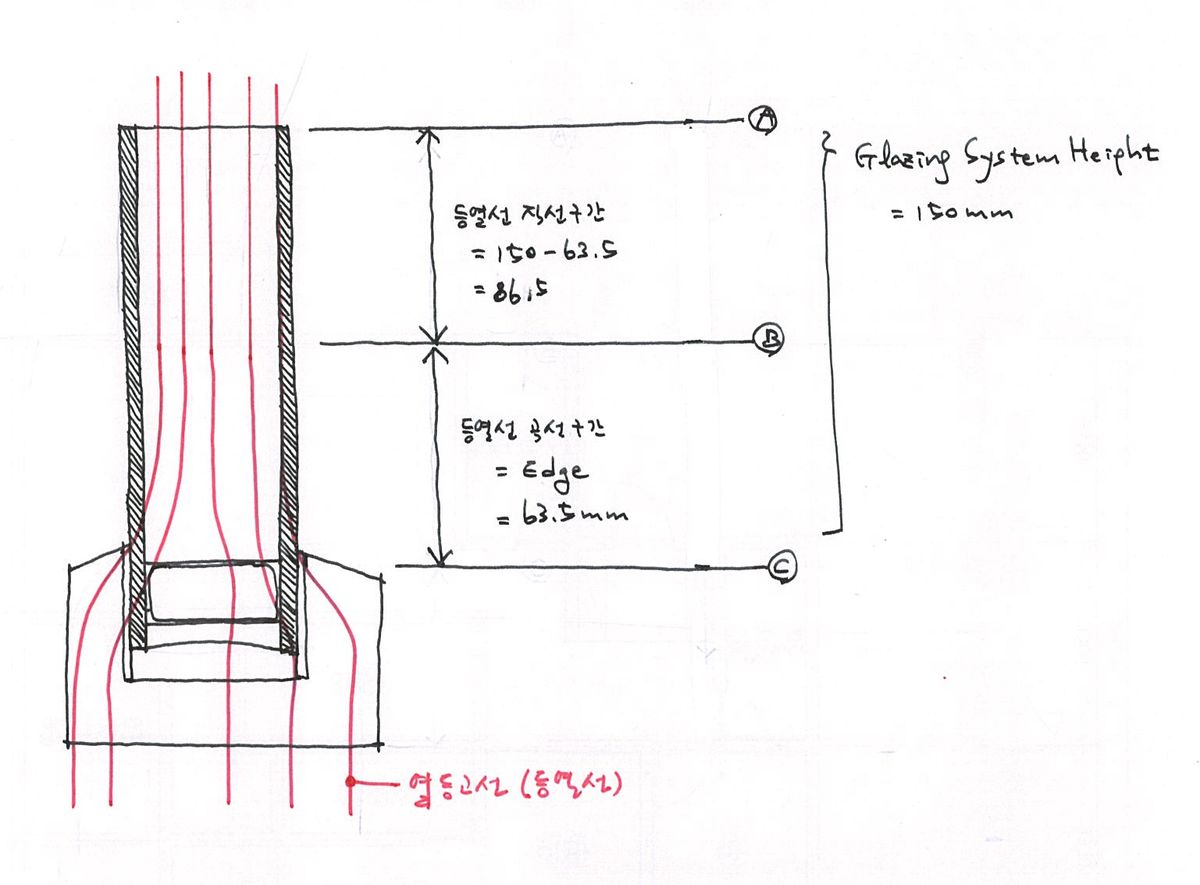 Ⓐ
Glazing System Height
= 150mm
등열선 직선구간
= 150-63.5
= 86.5
Ⓑ
등열선 곡선구간
= Edge
= 63.5mm
Ⓒ
열등고선 (등열선)